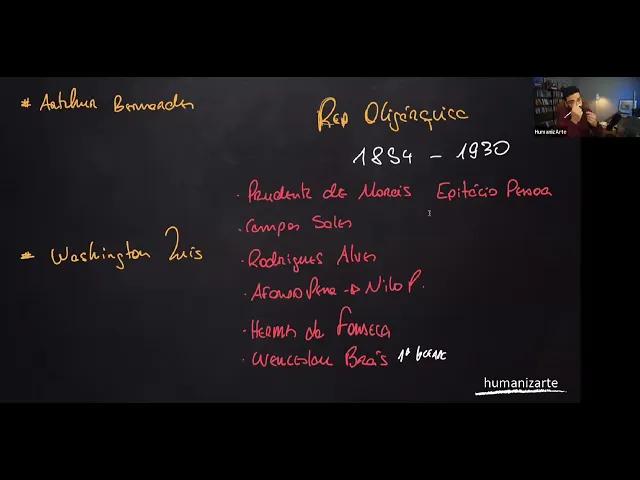 * Arthur Bernardes
Rep Oligárquica
1894 - 1930
· Prudente de Morais Epitácio Pessoa
· Campos Sales
* Washington Luis
· Rodrigues Alves
· Afonso Pena → Nilo P.
· Hermes da Fonseca
· Wenceslau Brás 1ª Guerra
humanizarte
HumanizArte